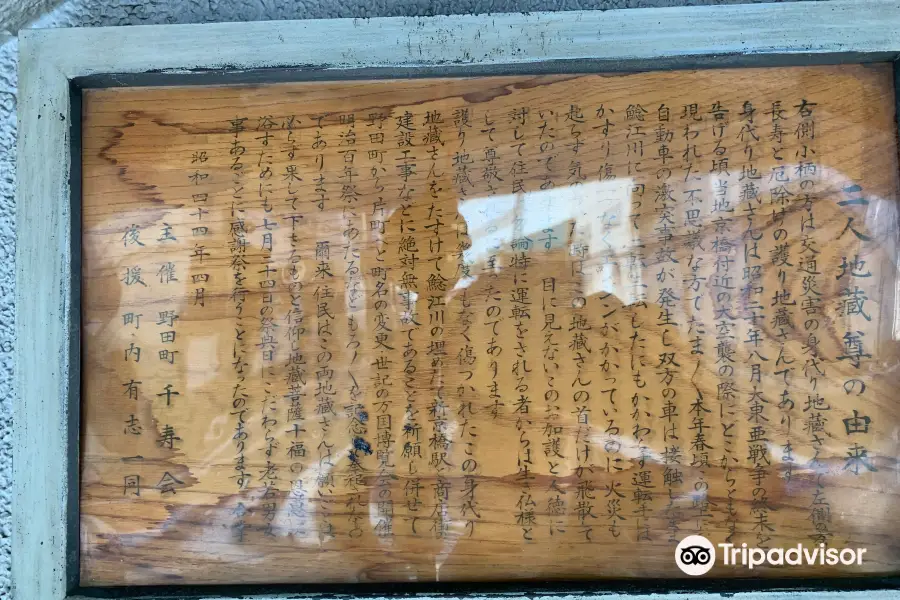 二人地蔵尊の由来
右側小柄の方は交通災害の身代り地蔵さんで左側
長寿と厄除けの護り地蔵さんであります
身代り地蔵さんは昭和二十年八月大東亜戦争の終末を
告げる頃当地京橋付近の大空襲の際にどこからともなく
現われた不思議な方でたま 本年春頃
自動車の激突事故が発生し双方の車は接触したまま
鯰江川に向って したにもかかわらず運転手は
かすり傷 ンがかかっているのに火災も
起らず気の 地蔵さんの首だけが飛散して
いたので 目に見えないこのお加護と人徳に
対して住民は 論特に運転をされる者からは生仏様と
して尊敬 たのであります
護り地蔵さ もなく傷つかれたこの身代り
地蔵さんをたすけて鯰江川の埋めたて新京橋駅 商店街
建設工事などに絶対無事故であることを祈願し併せて
野田町から片町 と町名の変更 世記の万国博覧会の開催
明治百年祭にあたるなどもろ〳〵を記念し
であります 爾来 住民はこの両地蔵さんは願いごとは
必らず果して下さるものと信仰し地蔵菩薩十福の恩恵に
浴すためにも七月二十四日の祭典日にこだわらず老若男女
事あるごとに感謝祭を行うことになったのであります
昭和四十四年四月
主催 野田町 千寿会
後援 町内有志一同
Tripadvisor